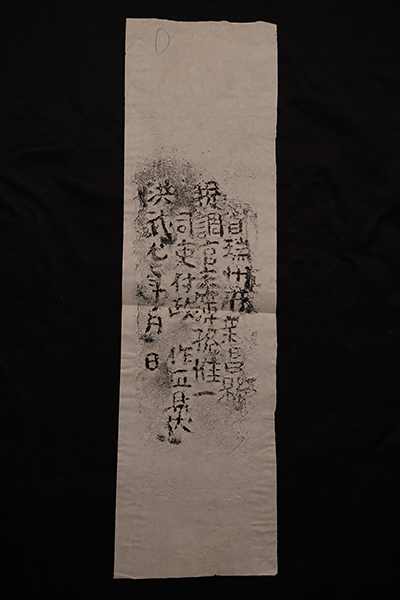 瑞州府新昌縣
提調官主簿孫惟一
司吏付 作匠
洪武七年 月 日